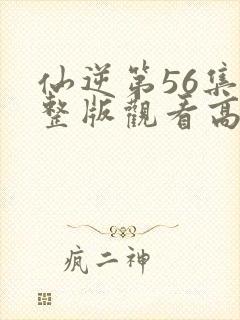 仙逆第56集
整版觀看高
疯二神